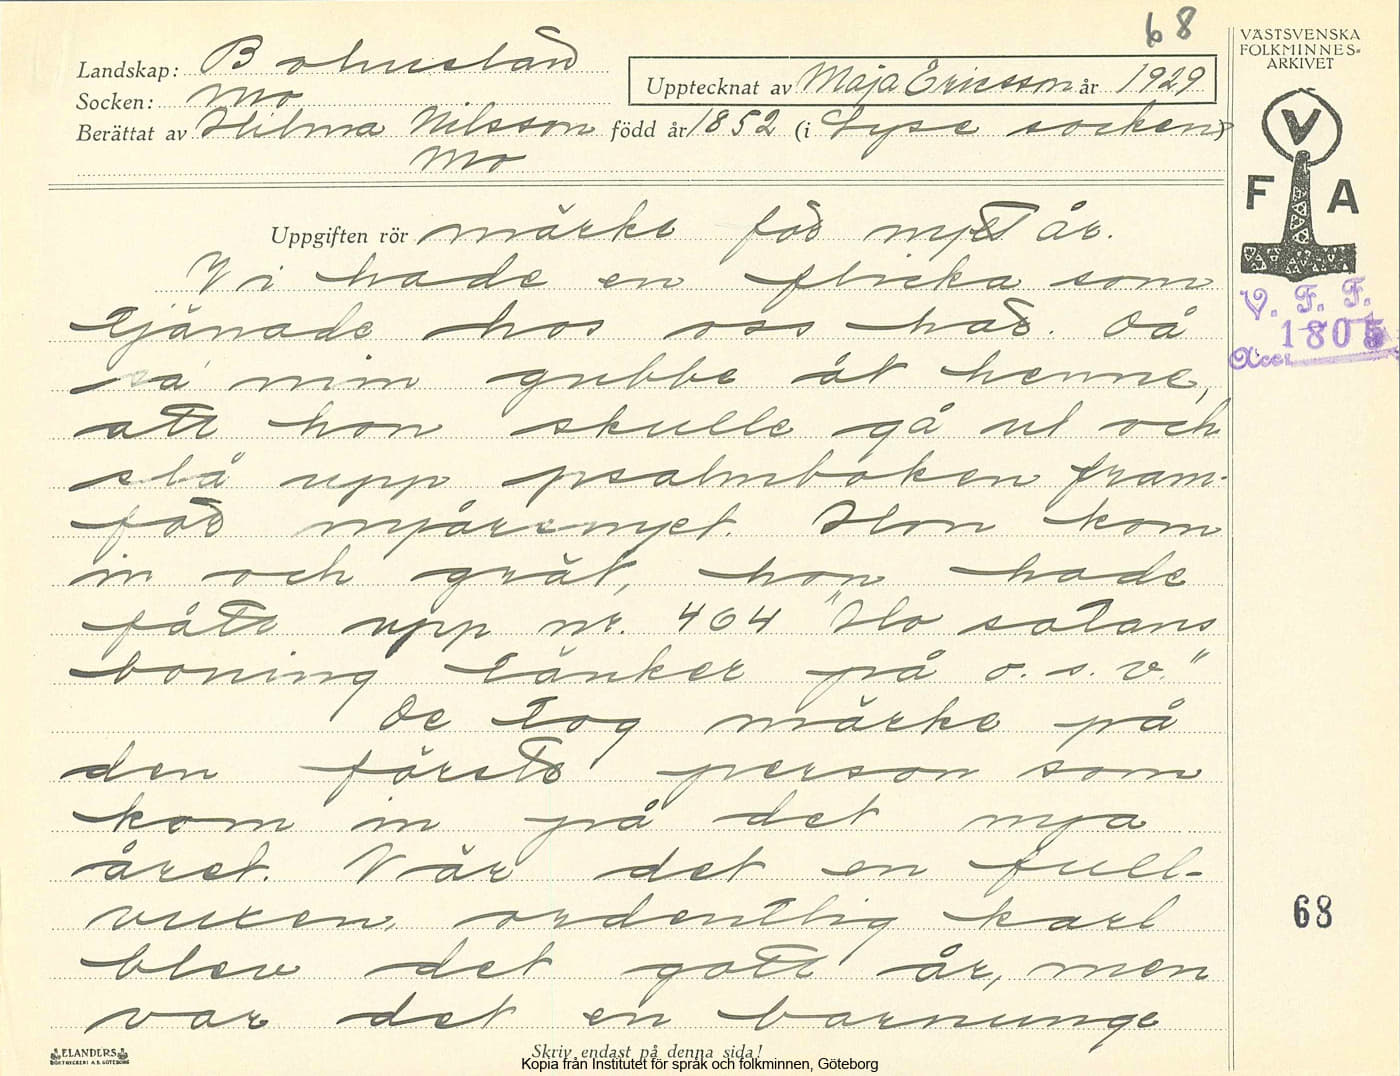 68
Landskap: Bohuslän
Upptecknat av Maja Ericsson år 1929
Socken: Mo
Berättat av Hilma Nilsson född år 1852 (i Lyse socken)
Mo
Uppgiften rör märke för nytt år.
Vi hade en flicka som
tjänade hos oss här. Då
sa min gubbe åt henne,
att hon skulle gå ut och
slå upp psalmboken fram-
för nyårsnyet. Hon kom
in och grät, hon hade
fått upp nr. 464 "Ho satans
boning tänker på o. s. v."
De tog märke på
den förste person som
kom in på det nya
året. Var det en full-
vuxen, ordentlig karl
blev det gott år, men
var det en barnunge
ELANDERS
BOKTRYCKERI A.B. GÖTEBORG
Skriv endast på denna sida!
Kopia från Institutet för språk och folkminnen, Göteborg
VÄSTSVENSKA
FOLKMINNES-
ARKIVET
V
F A
V. F. F.
1805
Acc.
68